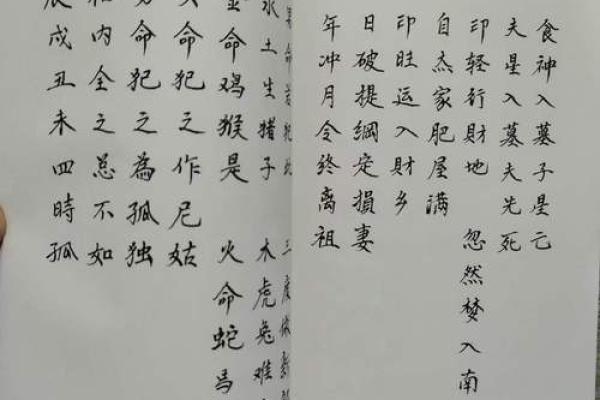 食神入墓子星亡
夫星入墓夫先死
印轻行財地 忽然梦入南
自杰家肥屋满
印旺运入財乡
日破提綱定損妻
年冲月令终离祖
水土生猪子 木虎兔难
金命鸡猴是 火命蛇马
命犯之作尼姑
命犯之為孤独
内全之总不如
辰戌丑未四時孤